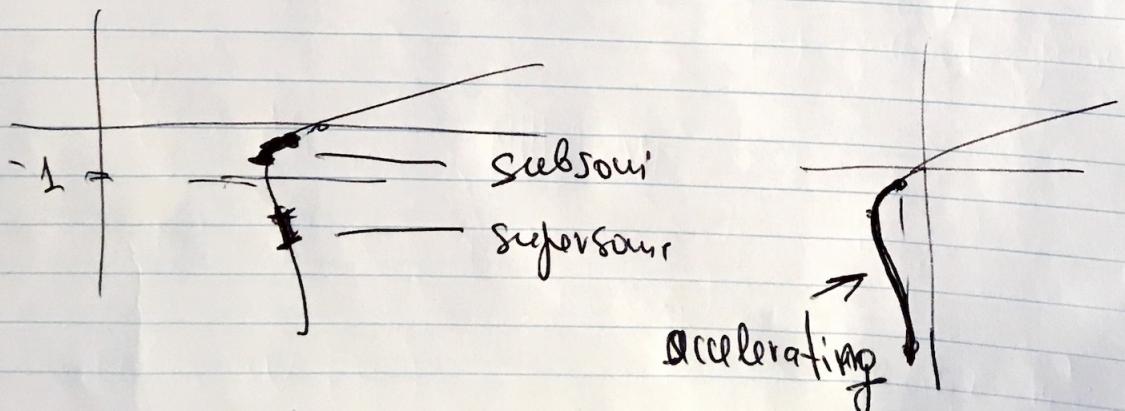 -1
subsoni
supersonic
accelerating